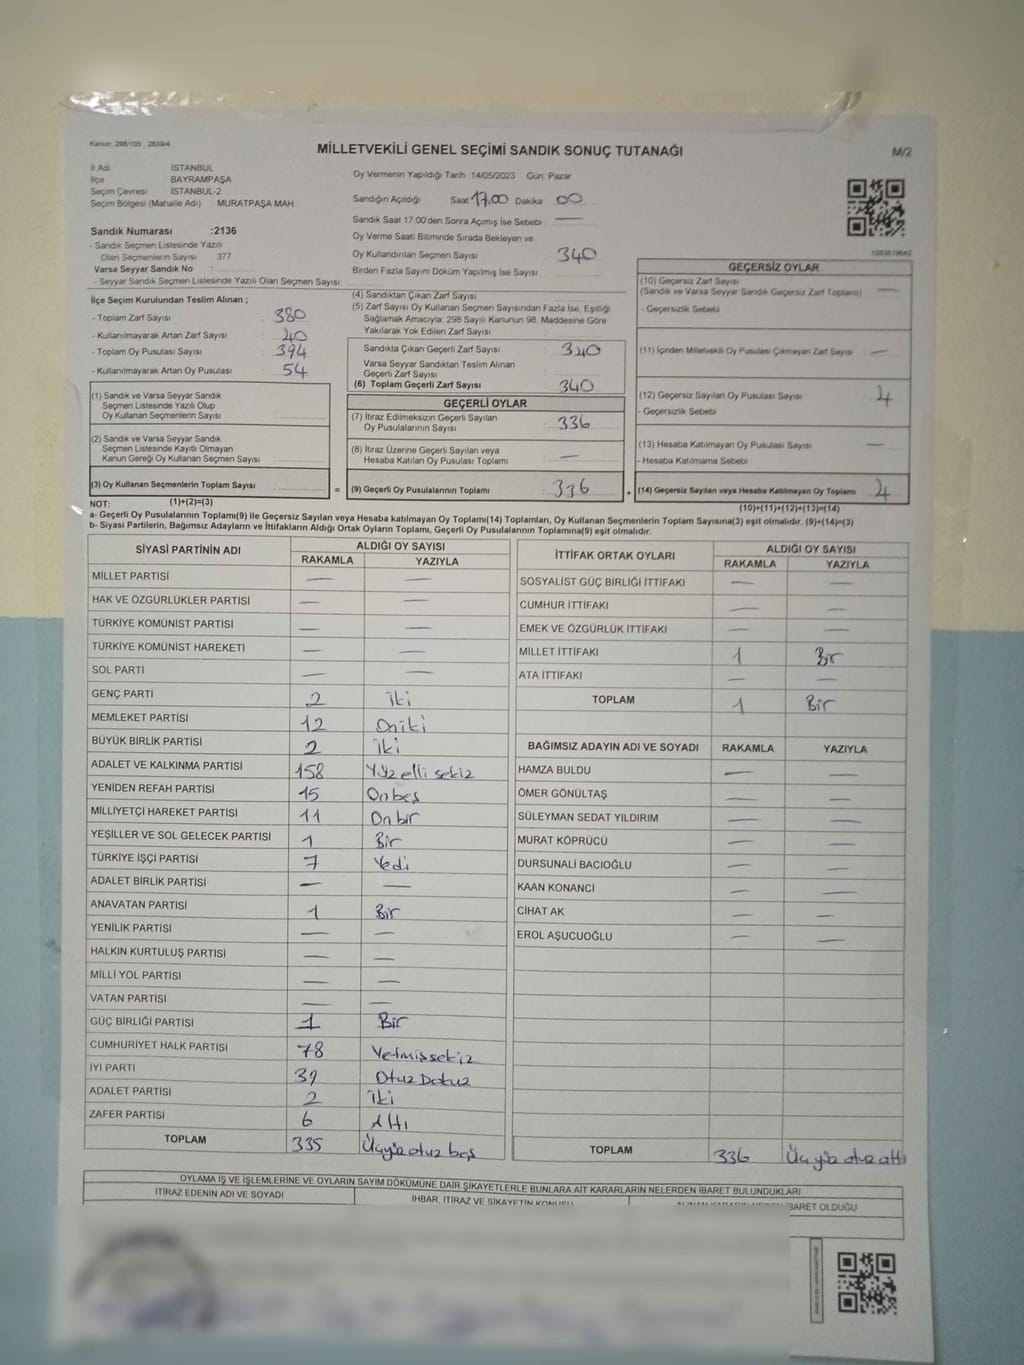 Kanun: 298/105 , 2839/4
MİLLETVEKİLİ GENEL SEÇİMİ SANDIK SONUÇ TUTANAĞI
M/2
İl Adı : İSTANBUL
İlçe : BAYRAMPAŞA
Seçim Çevresi : İSTANBUL-2
Seçim Bölgesi (Mahalle Adı) : MURATPAŞA MAH.
Sandık Numarası :2136
- Sandık Seçmen Listesinde Yazılı
Olan Seçmenlerin Sayısı : 377
Varsa Seyyar Sandık No :
- Seyyar Sandık Seçmen Listesinde Yazılı Olan Seçmen Sayısı :
Oy Vermenin Yapıldığı Tarih :14/05/2023 Gün: Pazar
Sandığın Açıldığı Saat 17.00 Dakika 00
Sandık Saat 17.00'den Sonra Açımış İse Sebebi : —
Oy Verme Saati Bitiminde Sırada Bekleyen ve
Oy Kullandırılan Seçmen Sayısı : 340
Birden Fazla Sayım Döküm Yapılmış İse Sayısı :
İlçe Seçim Kurulundan Teslim Alınan ;
- Toplam Zarf Sayısı : 380
- Kullanılmayarak Artan Zarf Sayısı : 40
- Toplam Oy Pusulası Sayısı : 394
- Kullanılmayarak Artan Oy Pusulası : 54
(1) Sandık ve Varsa Seyyar Sandık
Seçmen Listesinde Yazılı Olup
Oy Kullanan Seçmenlerin Sayısı :
(2) Sandık ve Varsa Seyyar Sandık
Seçmen Listesinde Kayıtlı Olmayan
Kanun Gereği Oy Kullanan Seçmen Sayısı :
(3) Oy Kullanan Seçmenlerin Toplam Sayısı :
(4) Sandıktan Çıkan Zarf Sayısı :
(5) Zarf Sayısı Oy Kullanan Seçmen Sayısından Fazla İse, Eşitliği
Sağlamak Amacıyla; 298 Sayılı Kanunun 98. Maddesine Göre
Yakılarak Yok Edilen Zarf Sayısı :
Sandıkta Çıkan Geçerli Zarf Sayısı : 340
Varsa Seyyar Sandıktan Teslim Alınan
Geçerli Zarf Sayısı :
(6) Toplam Geçerli Zarf Sayısı : 340
GEÇERLİ OYLAR
(7) İtiraz Edilmeksizin Geçerli Sayılan
Oy Pusulalarının Sayısı : 336
(8) İtiraz Üzerine Geçerli Sayılan veya
Hesaba Katılan Oy Pusulası Toplamı : —
= (9) Geçerli Oy Pusulalarının Toplamı : 336 +
GEÇERSİZ OYLAR
(10) Geçersiz Zarf Sayısı
(Sandık ve Varsa Seyyar Sandık Geçersiz Zarf Toplamı) : —
- Geçersizlik Sebebi
(11) İçinden Milletvekili Oy Pusulası Çıkmayan Zarf Sayısı : —
(12) Geçersiz Sayılan Oy Pusulası Sayısı : 4
- Geçersizlik Sebebi
(13) Hesaba Katılmayan Oy Pusulası Sayısı : —
- Hesaba Katılmama Sebebi
(14) Geçersiz Sayılan veya Hesaba Katılmayan Oy Toplamı : 4
NOT: (1)+(2)=(3)
(10)+(11)+(12)+(13)=(14)
a- Geçerli Oy Pusulalarının Toplamı(9) ile Geçersiz Sayılan veya Hesaba katılmayan Oy Toplamı(14) Toplamları, Oy Kullanan Seçmenlerin Toplam Sayısına(3) eşit olmalıdır. (9)+(14)=(3)
b- Siyasi Partilerin, Bağımsız Adayların ve İttifakların Aldığı Ortak Oyların Toplamı, Geçerli Oy Pusulalarının Toplamına(9) eşit olmalıdır.
SİYASİ PARTİNİN ADI ALDIĞI OY SAYISI
RAKAMLA YAZIYLA
MİLLET PARTİSİ — —
HAK VE ÖZGÜRLÜKLER PARTİSİ — —
TÜRKİYE KOMÜNİST PARTİSİ — —
TÜRKİYE KOMÜNİST HAREKETİ — —
SOL PARTİ — —
GENÇ PARTİ 2 İki
MEMLEKET PARTİSİ 12 Oniki
BÜYÜK BİRLİK PARTİSİ 2 İki
ADALET VE KALKINMA PARTİSİ 158 Yüz elli sekiz
YENİDEN REFAH PARTİSİ 15 Onbeş
MİLLİYETÇİ HAREKET PARTİSİ 11 Onbir
YEŞİLLER VE SOL GELECEK PARTİSİ 1 Bir
TÜRKİYE İŞÇİ PARTİSİ 7 Yedi
ADALET BİRLİK PARTİSİ — —
ANAVATAN PARTİSİ 1 Bir
YENİLİK PARTİSİ — —
HALKIN KURTULUŞ PARTİSİ — —
MİLLİ YOL PARTİSİ — —
VATAN PARTİSİ — —
GÜÇ BİRLİĞİ PARTİSİ 1 Bir
CUMHURİYET HALK PARTİSİ 78 Yetmişsekiz
İYİ PARTİ 39 Otuz Dokuz
ADALET PARTİSİ 2 İki
ZAFER PARTİSİ 6 Altı
TOPLAM 335 Üçyüz otuz beş
İTTİFAK ORTAK OYLARI ALDIĞI OY SAYISI
RAKAMLA YAZIYLA
SOSYALİST GÜÇ BİRLİĞİ İTTİFAKI — —
CUMHUR İTTİFAKI — —
EMEK VE ÖZGÜRLÜK İTTİFAKI — —
MİLLET İTTİFAKI 1 Bir
ATA İTTİFAKI — —
TOPLAM 1 Bir
BAĞIMSIZ ADAYIN ADI VE SOYADI RAKAMLA YAZIYLA
HAMZA BULDU — —
ÖMER GÖNÜLTAŞ — —
SÜLEYMAN SEDAT YILDIRIM — —
MURAT KÖPRÜCÜ — —
DURSUNALİ BACIOĞLU — —
KAAN KONANCİ — —
CİHAT AK — —
EROL AŞUCUOĞLU — —
TOPLAM 336 Üçyüz otuz altı
OYLAMA İŞ VE İŞLEMLERİNE VE OYLARIN SAYIM DÖKÜMÜNE DAİR ŞİKAYETLERLE BUNLARA AİT KARARLARIN NELERDEN İBARET BULUNDUKLARI
İTİRAZ EDENİN ADI VE SOYADI
İHBAR, İTİRAZ VE ŞİKAYETİN KONUSU
İBARET OLDUĞU